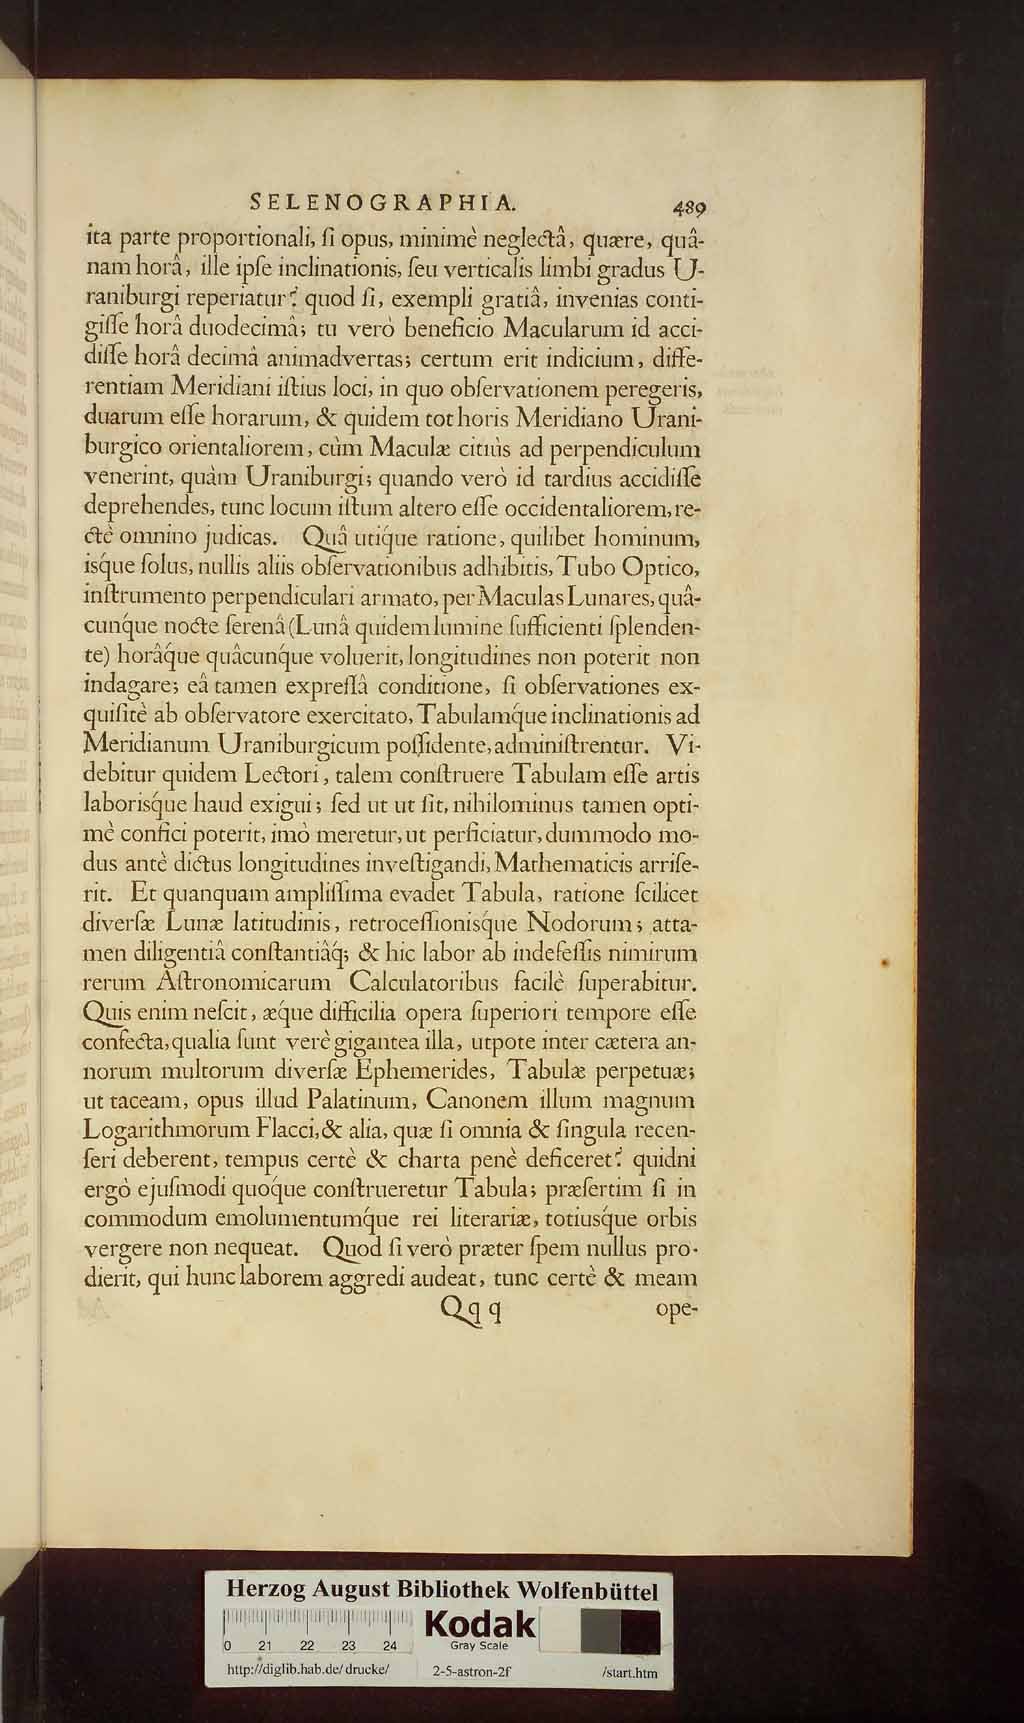 SELENOGRAPHIA. 489
ita parte proportionali, ſi opus, minimè neglectâ, quære, quâ-
nam horâ, ille ipſe inclinationis, ſeu verticalis limbi gradus U-
raniburgi reperiatur? quod ſi, exempli gratiâ, invenias conti-
giſſe horâ duodecimâ; tu verò beneficio Macularum id acci-
diſſe horâ decimâ animadvertas; certum erit indicium, diffe-
rentiam Meridiani iſtius loci, in quo obſervationem peregeris,
duarum eſſe horarum, & quidem tot horis Meridiano Urani-
burgico orientaliorem, cùm Maculæ citiùs ad perpendiculum
venerint, quàm Uraniburgi; quando verò id tardius accidiſſe
deprehendes, tunc locum iſtum altero eſſe occidentaliorem, re-
ctè omnino judicas. Quâ utíque ratione, quilibet hominum,
isq́ue ſolus, nullis aliis obſervationibus adhibitis, Tubo Optico,
inſtrumento perpendiculari armato, per Maculas Lunares, quâ-
cunq́ue nocte ſerenâ (Lunâ quidem lumine ſufficienti ſplenden-
te) horâq́ue quâcunq́ue voluerit, longitudines non poterit non
indagare; eâ tamen expreſſâ conditione, ſi obſervationes ex-
quiſitè ab obſervatore exercitato, Tabulamq́ue inclinationis ad
Meridianum Uraniburgicum poſſidente, adminiſtrentur. Vi-
debitur quidem Lectori, talem conſtruere Tabulam eſſe artis
laborisq́ue haud exigui; ſed ut ut ſit, nihilominus tamen opti-
mè confici poterit, imò meretur, ut perficiatur, dummodo mo-
dus antè dictus longitudines inveſtigandi, Mathematicis arriſe-
rit. Et quanquam ampliſſima evadet Tabula, ratione ſcilicet
diverſæ Lunæ latitudinis, retroceſſionisq́ue Nodorum; atta-
men diligentiâ conſtantiâq́; & hic labor ab indefeſſis nimirum
rerum Aſtronomicarum Calculatoribus facilè ſuperabitur.
Quis enim neſcit, æq́ue difficilia opera ſuperiori tempore eſſe
confecta, qualia ſunt verè gigantea illa, utpote inter cætera an-
norum multorum diverſæ Ephemerides, Tabulæ perpetuæ;
ut taceam, opus illud Palatinum, Canonem illum magnum
Logarithmorum Flacci, & alia, quæ ſi omnia & ſingula recen-
ſeri deberent, tempus certè & charta penè deficeret? quidni
ergò ejuſmodi quoq́ue conſtrueretur Tabula; præſertim ſi in
commodum emolumentumq́ue rei literariæ, totiusq́ue orbis
vergere non nequeat. Quod ſi verò præter ſpem nullus pro-
dierit, qui hunc laborem aggredi audeat, tunc certè & meam
Qq q ope-
Herzog August Bibliothek Wolfenbüttel
Kodak
Gray Scale
0 21 22 23 24
http://diglib.hab.de/drucke/ 2-5-astron-2f /start.htm